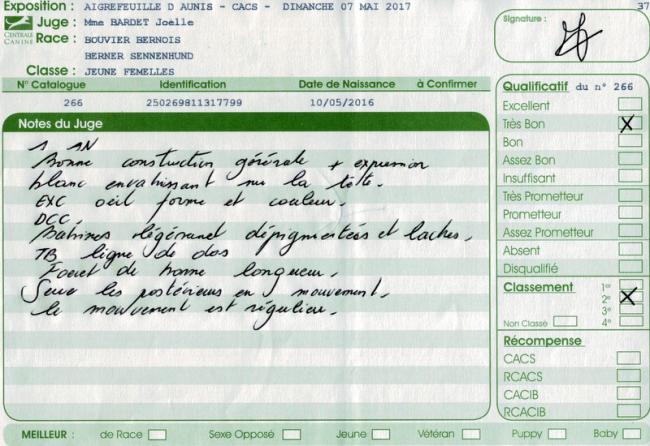 Exposition : AIGREFEUILLE D AUNIS - CACS - DIMANCHE 07 MAI 2017 37
CENTRALE CANINE
Juge : Mme BARDET Joëlle
Signature :
Race : BOUVIER BERNOIS
BERNER SENNENHUND
Classe : JEUNE FEMELLES
N° Catalogue Identification Date de Naissance à Confirmer
266 250269811317799 10/05/2016
Notes du Juge
1 1N
Bonne construction générale + expression
blanc envahissant sur la tête.
EXC oeil forme et couleur.
DCC.
Babines légérement dépigmentées et laches.
TB ligne de dos
Fouet de bonne longueur.
Serre les postérieurs en mouvement.
le mouvement est régulier.
Qualificatif du n° 266
Excellent
Très Bon X
Bon
Assez Bon
Insuffisant
Très Prometteur
Prometteur
Assez Prometteur
Absent
Disqualifié
Classement 1er
2e X
3e
Non Classé 4e
Récompense
CACS
RCACS
CACIB
RCACIB
MEILLEUR : de Race Sexe Opposé Jeune Vétéran Puppy Baby